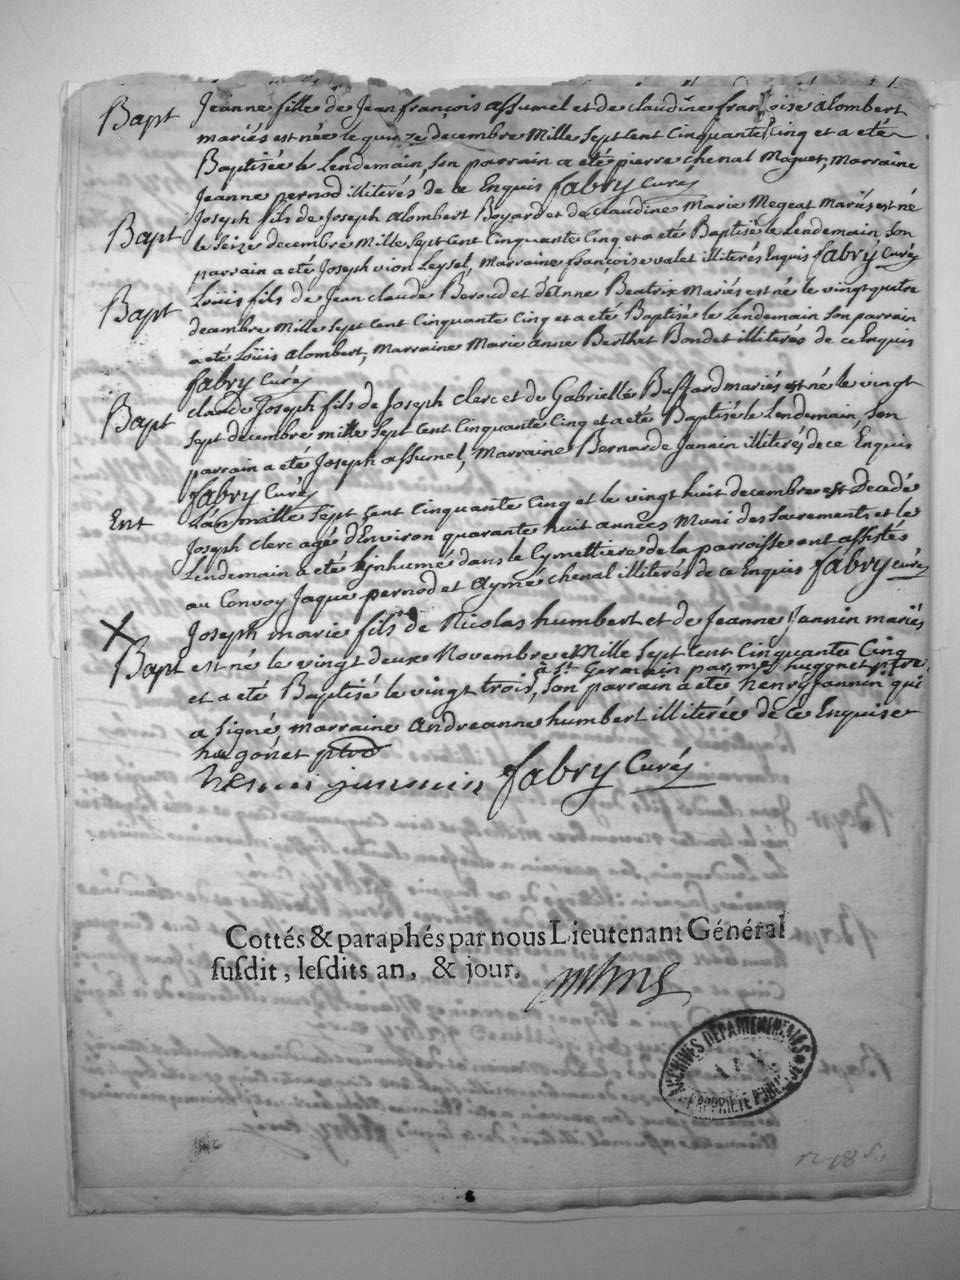 Bapt Jeanne fille de Jean françois assumel et de claudine françoise alombert
mariés est née le quinze decembre Mille Sept Cent Cinquante Cinq et a eté
Baptisée le Lendemain, Son parrain a eté pierre chenal Maguet, Marraine
Jeanne pernod illiterés de ce Enquis fabry Curé
Bapt Joseph fils de Joseph alombert Boyard et de claudine Marie Megeat Mariés est né
le Seize decembre Mille Sept Cent Cinquante Cinq et a eté Baptisé le Lendemain Son
parrain a eté Joseph vion Leysel, Marraine françoise valet illiterés Enquis fabry Curé
Bapt Loüis fils de Jean claude Beroud et d'anne Beatrix Mariés est né le vingt quatre
decembre Mille Sept Cent Cinquante Cinq et a eté Baptisé le Lendemain Son parrain
a eté Loüis alombert, Marraine Marie anne Berthet Bondet illiterés de ce Enquis
fabry Curé
Bapt claude Joseph fils de Joseph clerc et de Gabrielle Buffard mariés est né le vingt
Sept decembre mille Sept Cent Cinquante Cinq et a eté Baptisé le Lendemain, Son
parrain a eté Joseph assumel, Marraine Bernarde Jannin illiterés de ce Enquis
fabry Curé
Ent L'an mille Sept Cent Cinquante Cinq et le vingt huit decembre est Decedé
Joseph clerc agé d'Environ quarante huit années Muni des Sacrements et le
Lendemain a eté Inhumé dans le Cymettiere de la parroisse ont assistés
au Convoy Jaque pernod et Aymé chenal illiterés de ce Enquis fabry Curé
X Bapt Joseph marie fils de Nicolas humbert et de Jeanne Jannin mariés
est né le vingt deux Novembre Mille Sept Cent Cinquante Cinq
à St Germain par mre hugonet ptre
et a eté Baptisé le vingt trois, Son parrain a eté henry Jannin qui
a Signé marraine Andreanne humbert illiterée de ce Enquise
hugonet ptre
henri jannin fabry Curé
Cottés & paraphés par nous Lieutenant Général
susdit, lesdits an, & jour.
ARCHIVES DÉPARTEMENTALES
PROPRIÉTÉ PUBLIQUE